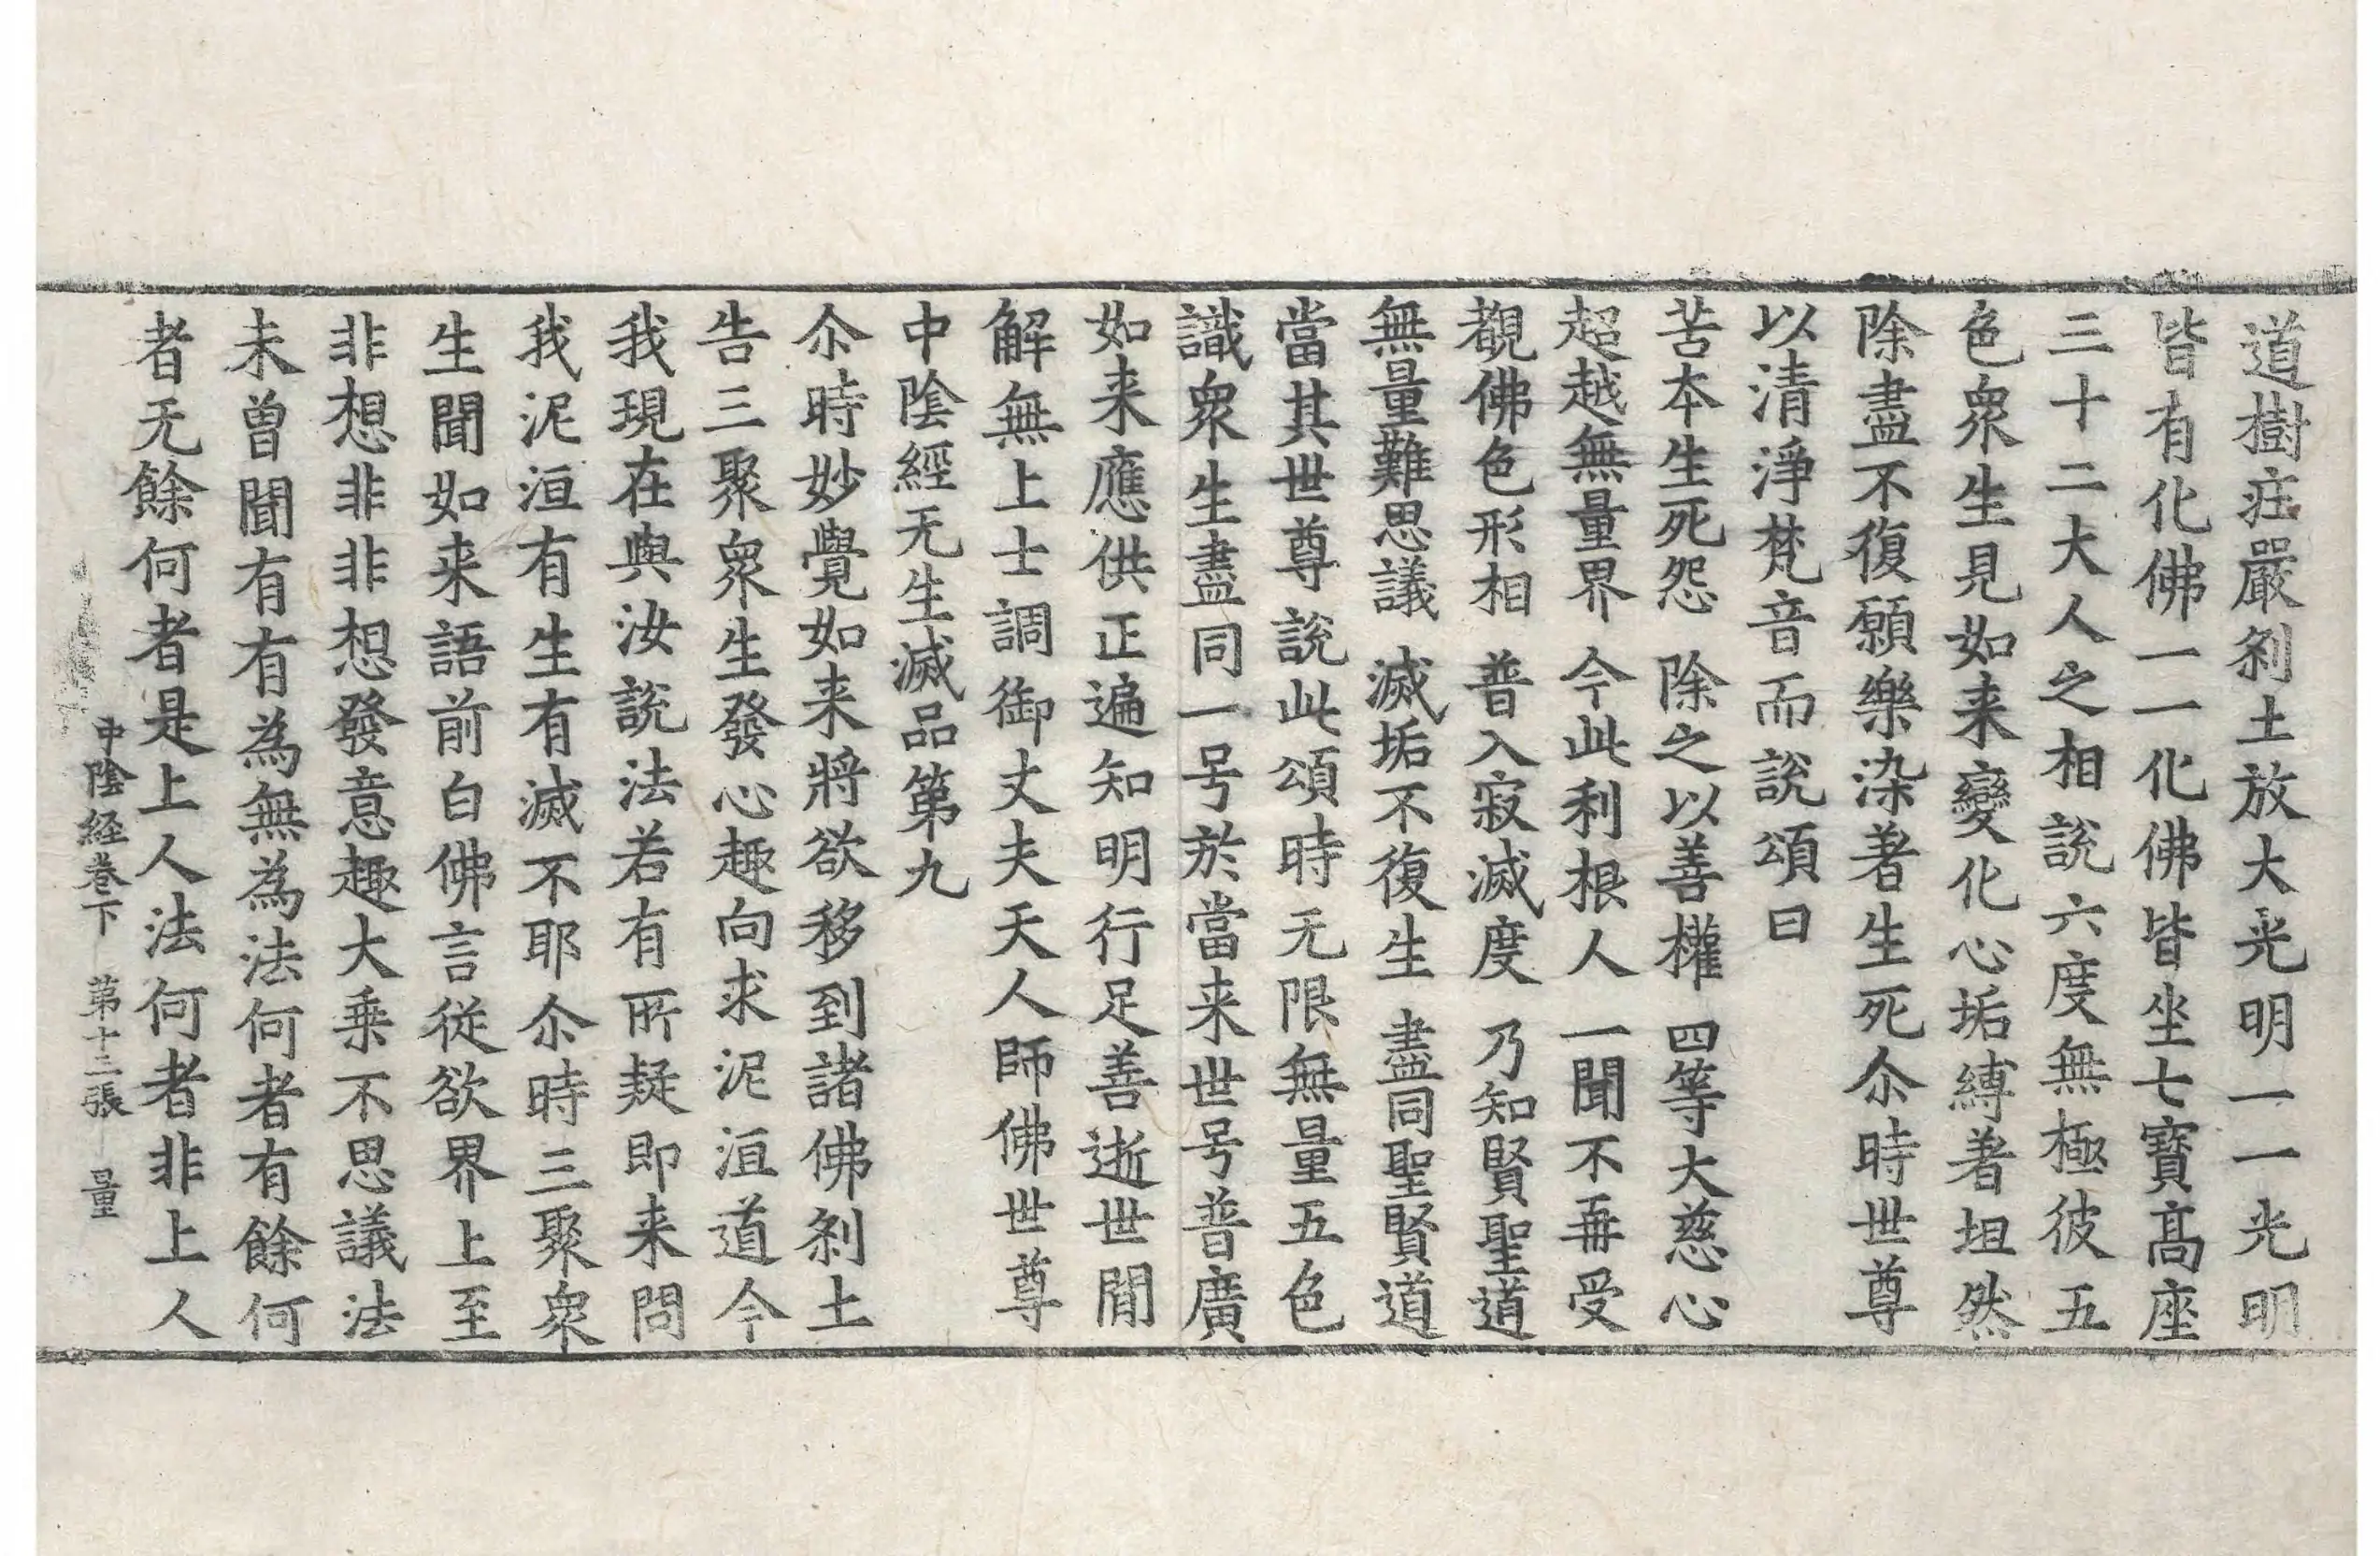 道樹庄嚴刹土放大光明一一光明
皆有化佛一一化佛皆坐七寶髙座
三十二大人之相說六度無極彼五
色衆生見如来變化心垢縛著坦然
除盡不復願樂染著生死尒時世尊
以清淨梵音而說頌曰
苦本生死怨　除之以善權　四等大慈心
超越無量界　今此利根人　一聞不再受
覩佛色形相　普入寂滅度　乃知賢聖道
無量難思議　滅垢不復生　盡同聖賢道
當其世尊說此頌時无限無量五色
識衆生盡同一号於當来世号普廣
如来應供正遍知明行足善逝世閒
解無上士調御丈夫天人師佛世尊
中陰經无生滅品第九
尒時妙覺如来將欲移到諸佛刹土
告三聚衆生發心趣向求泥洹道今
我現在與汝說法若有所疑即来問
我泥洹有生有滅不耶尒時三聚衆
生聞如来語前白佛言從欲界上至
非想非非想發意趣大乗不思議法
未曽聞有有為無為法何者有餘何
者无餘何者是上人法何者非上人
中陰経巻下　第十三張　量